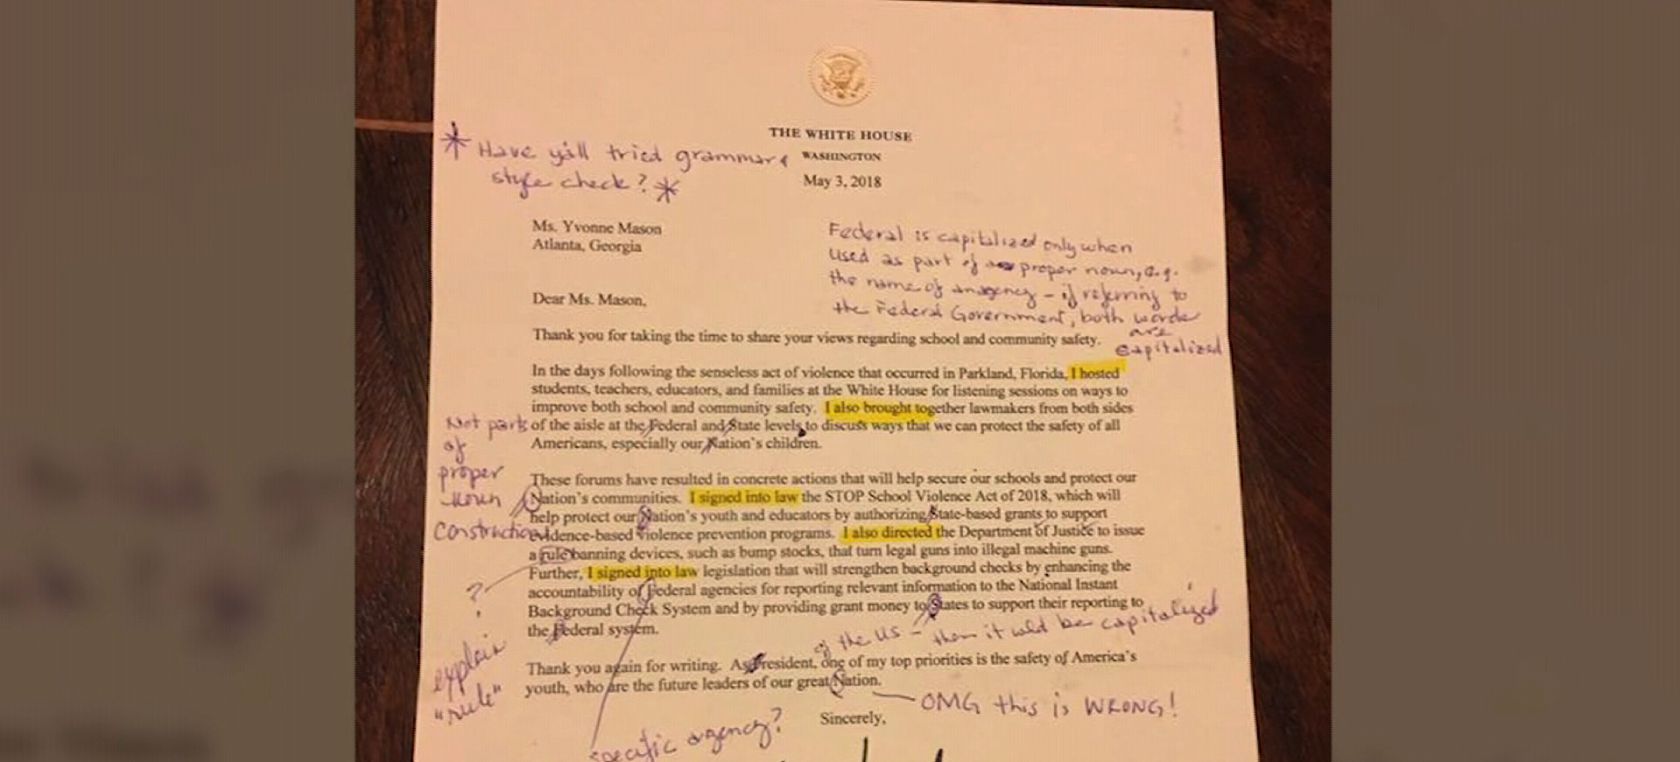 THE WHITE HOUSE
WASHINGTON
May 3, 2018
* Have y'all tried grammar &
style check? *
Ms. Yvonne Mason
Atlanta, Georgia
Federal is capitalized only when
used as part of proper noun, e.g.
the name of an agency - if referring to
the Federal Government, both words
are
capitalized
Dear Ms. Mason,
Thank you for taking the time to share your views regarding school and community safety.
In the days following the senseless act of violence that occurred in Parkland, Florida, I hosted
students, teachers, educators, and families at the White House for listening sessions on ways to
improve both school and community safety. I also brought together lawmakers from both sides
of the aisle at the Federal and State levels to discuss ways that we can protect the safety of all
Americans, especially our Nation's children.
Not parts
of
proper
noun
construction
These forums have resulted in concrete actions that will help secure our schools and protect our
Nation's communities. I signed into law the STOP School Violence Act of 2018, which will
help protect our Nation's youth and educators by authorizing State-based grants to support
evidence-based violence prevention programs. I also directed the Department of Justice to issue
a rule banning devices, such as bump stocks, that turn legal guns into illegal machine guns.
Further, I signed into law legislation that will strengthen background checks by enhancing the
accountability of Federal agencies for reporting relevant information to the National Instant
Background Check System and by providing grant money to States to support their reporting to
the Federal system.
?
explain
"rule"
of the US - then it wld be capitalized
Thank you again for writing. As President, one of my top priorities is the safety of America's
youth, who are the future leaders of our great Nation.
OMG this is WRONG!
Sincerely,
specific agency?